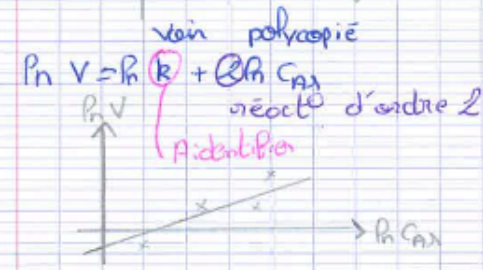 voir polycopié
ln V = ln k + 2 ln CA1
réactº d'ordre 2
ln V
à identifier
ln CA1